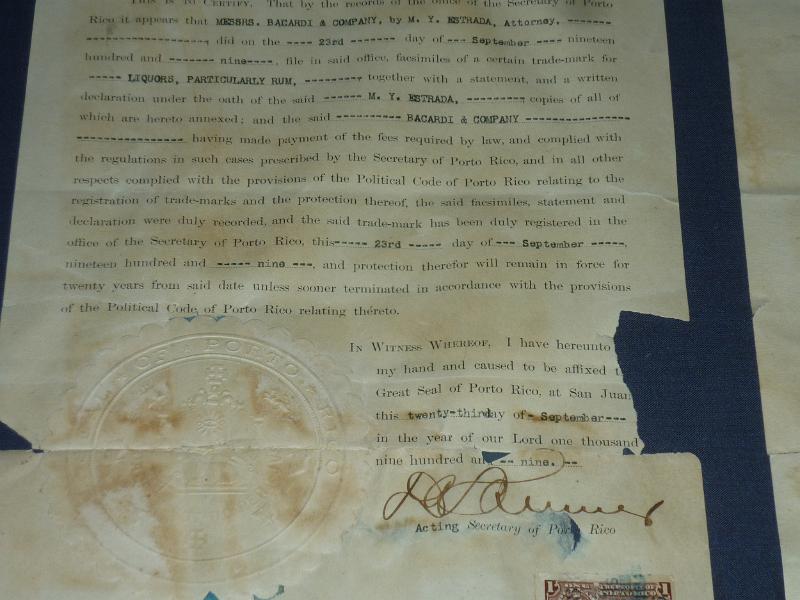 THIS IS TO CERTIFY. That by the records of the office of the Secretary of Porto
Rico it appears that MESSRS. BACARDI & COMPANY, by M. Y. ESTRADA, Attorney, -------
-----------------, did on the ---- 23rd ------- day of --- September ---- nineteen
hundred and ------- nine----, file in said office, facsimiles of a certain trade-mark for
----- LIQUORS, PARTICULARLY RUM, ---------, together with a statement, and a written
declaration under the oath of the said ------ M. Y. ESTRADA, ---------; copies of all of
which are hereto annexed; and the said ---------- BACARDI & COMPANY ----------------
---------------- having made payment of the fees required by law, and complied with
the regulations in such cases prescribed by the Secretary of Porto Rico, and in all other
respects complied with the provisions of the Political Code of Porto Rico relating to the
registration of trade-marks and the protection thereof, the said facsimiles, statement and
declaration were duly recorded, and the said trade-mark has been duly registered in the
office of the Secretary of Porto Rico, this----- 23rd ----- day of--- September -----,
nineteen hundred and ----- nine ---, and protection therefor will remain in force for
twenty years from said date unless sooner terminated in accordance with the provisions
of the Political Code of Porto Rico relating thereto.
IN WITNESS WHEREOF, I have hereunto
my hand and caused to be affixed
Great Seal of Porto Rico, at San Juan
this twenty-third day of- September---
in the year of our Lord one thousand
nine hundred and -- nine. --
Acting Secretary of Porto Rico
PORTO RICO
1 ONE THE PEOPLE OF PORTO RICO 1